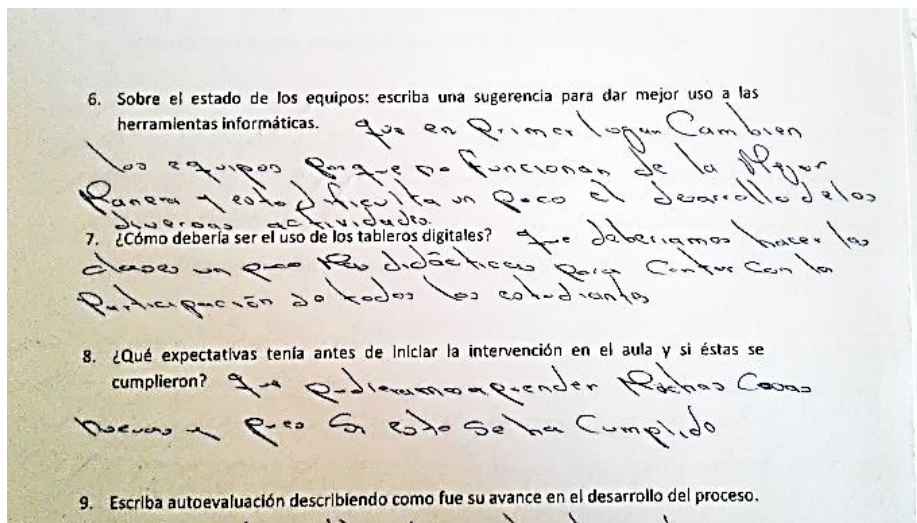 6. Sobre el estado de los equipos: escriba una sugerencia para dar mejor uso a las
herramientas informáticas. que en Primer lugar Cambien
los equipos porque no funcionan de la Mejor
Manera y esto dificulta un Poco el desarrollo de los
diversas actividades.
7. ¿Cómo debería ser el uso de los tableros digitales? que deberiamos hacer las
clases un poco Mas didácticas para Contar Con la
Participación de todos los estudiantes
8. ¿Qué expectativas tenía antes de iniciar la intervención en el aula y si éstas se
cumplieron? que pudieramos aprender Muchas Cosas
nuevas y pues Si esto Se ha Cumplido
9. Escriba autoevaluación describiendo como fue su avance en el desarrollo del proceso.